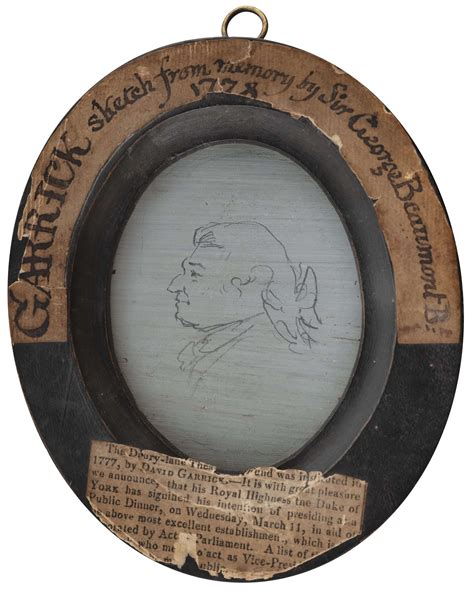 GARRICK sketch from memory by Sir George Beaumont B:
1778
The Drury-lane end was instituted in
1777, by DAVID GARRICK.—It is with great pleasure
we announce, that his Royal Highness the Duke of
YORK has signified his intention of presiding a
Public Dinner, on Wednesday, March 11, in aid of
above most excellent establishment, which is
by Act Parliament. A list of
who me to act as Vice-Presi
publi